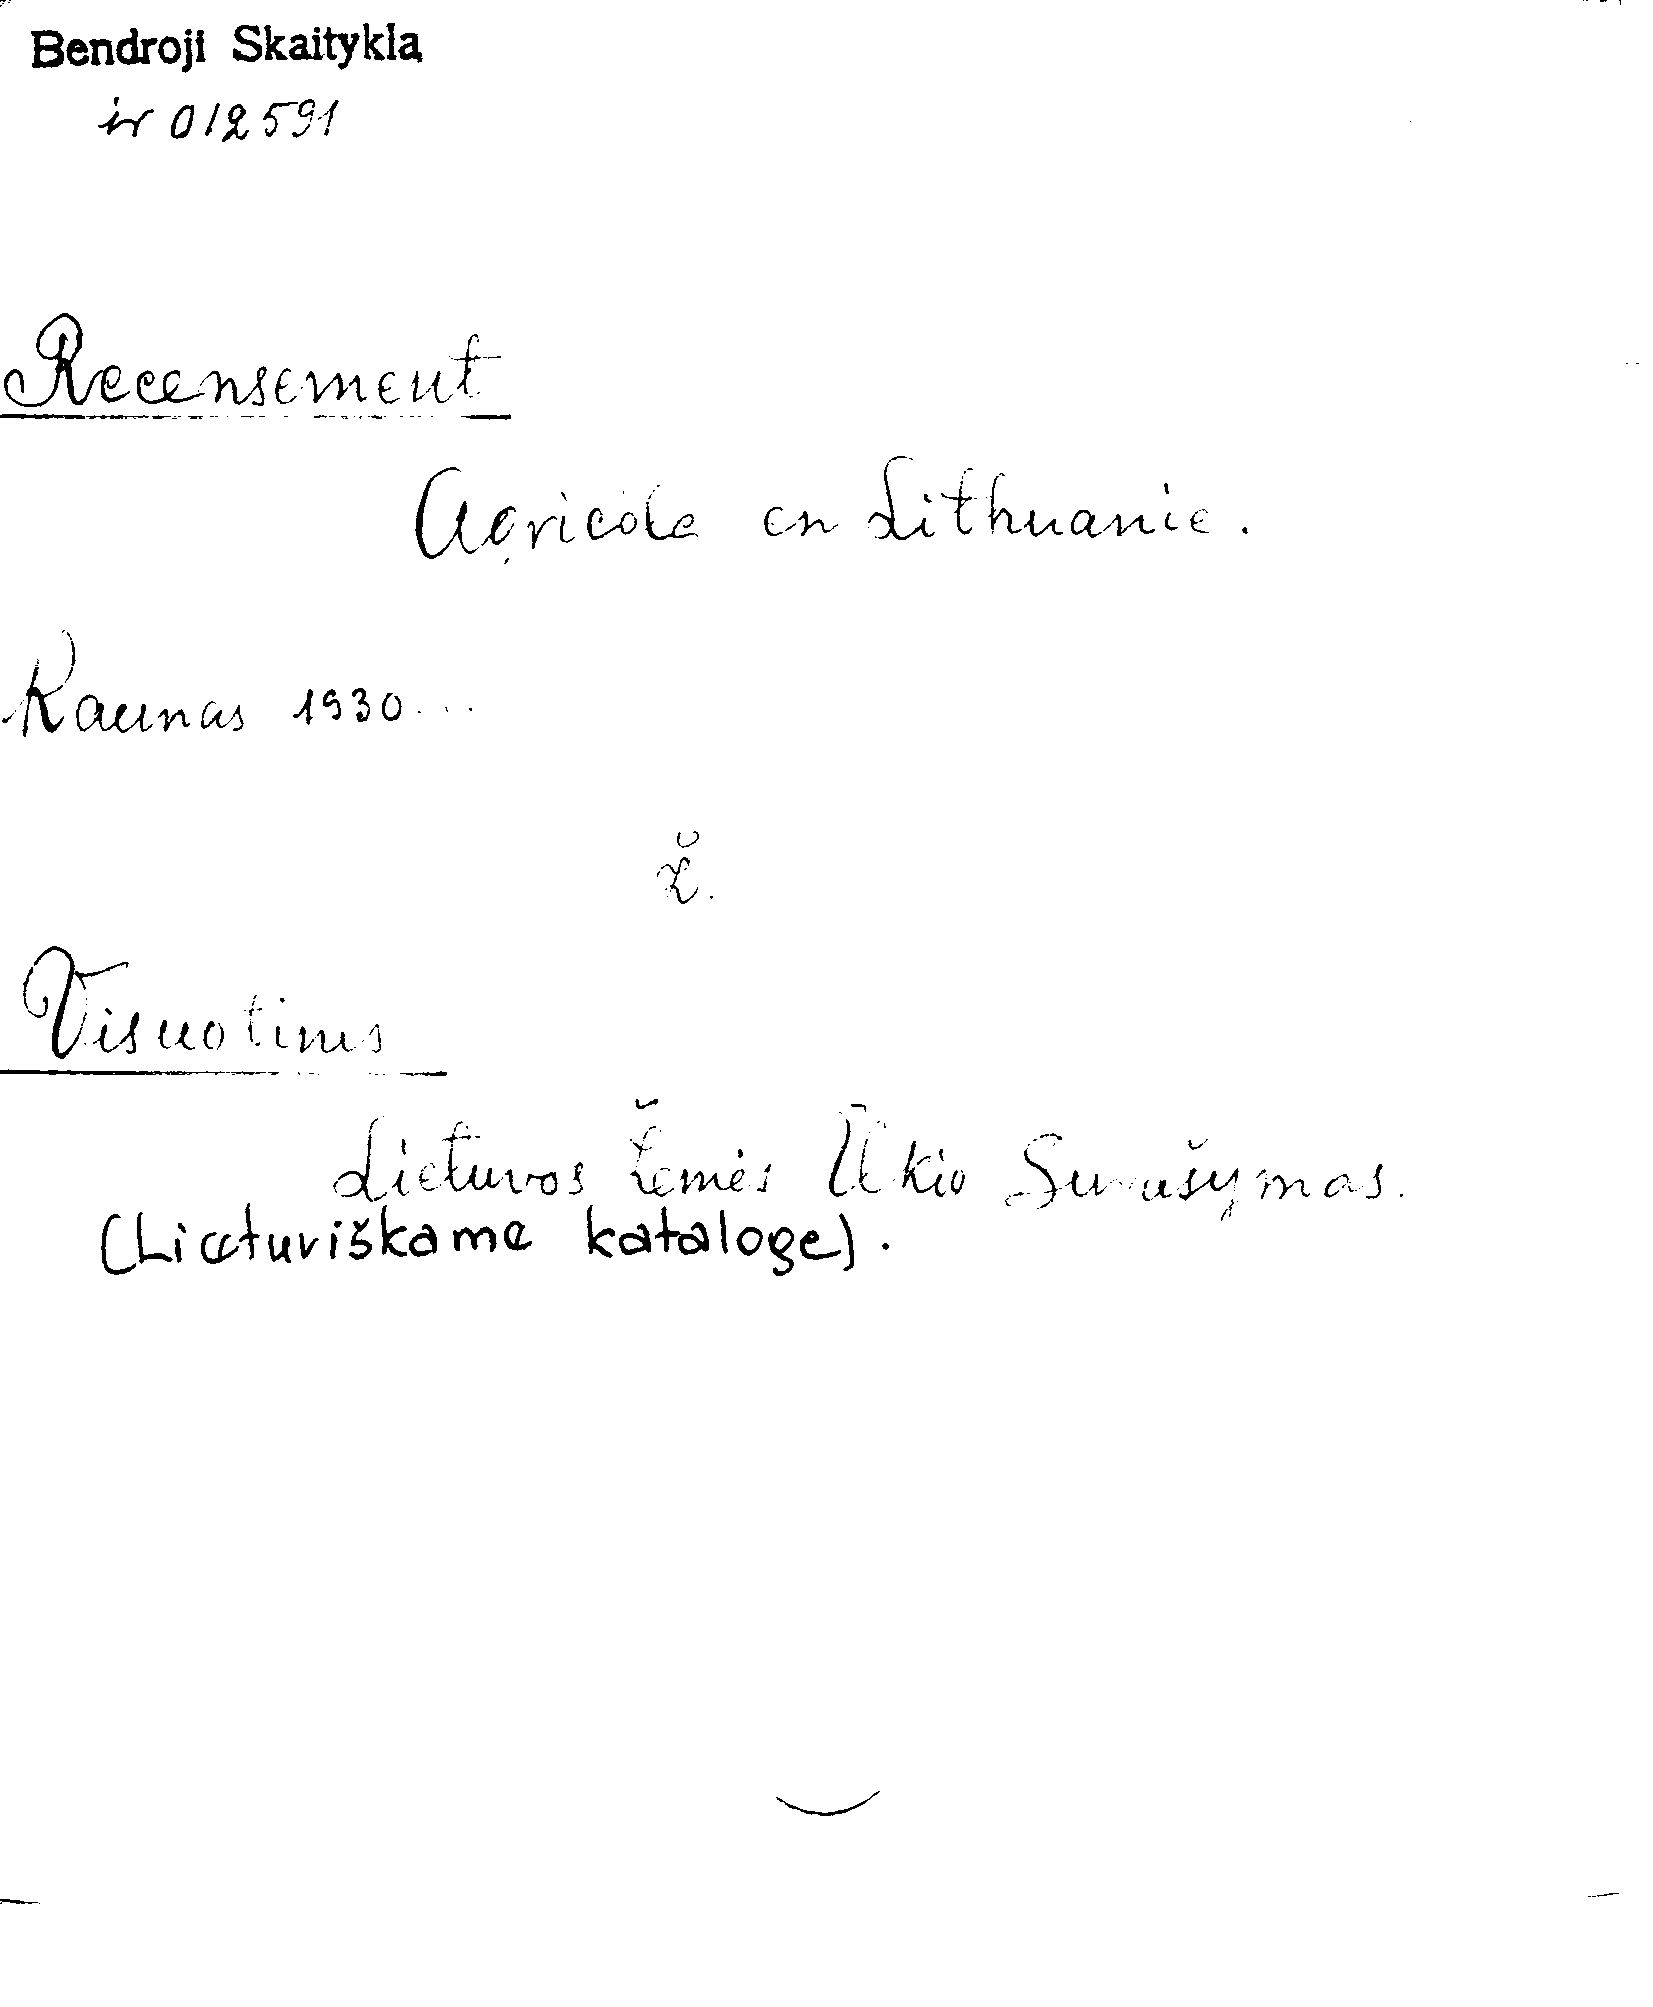 Bendroji Skaitykla
ir 012591
Recensement
Agricole en Lithuanie.
Kaunas 1930...
ž.
Visuotinis
Lietuvos Žemės Ūkio Surašymas.
(Lietuviškame kataloge).